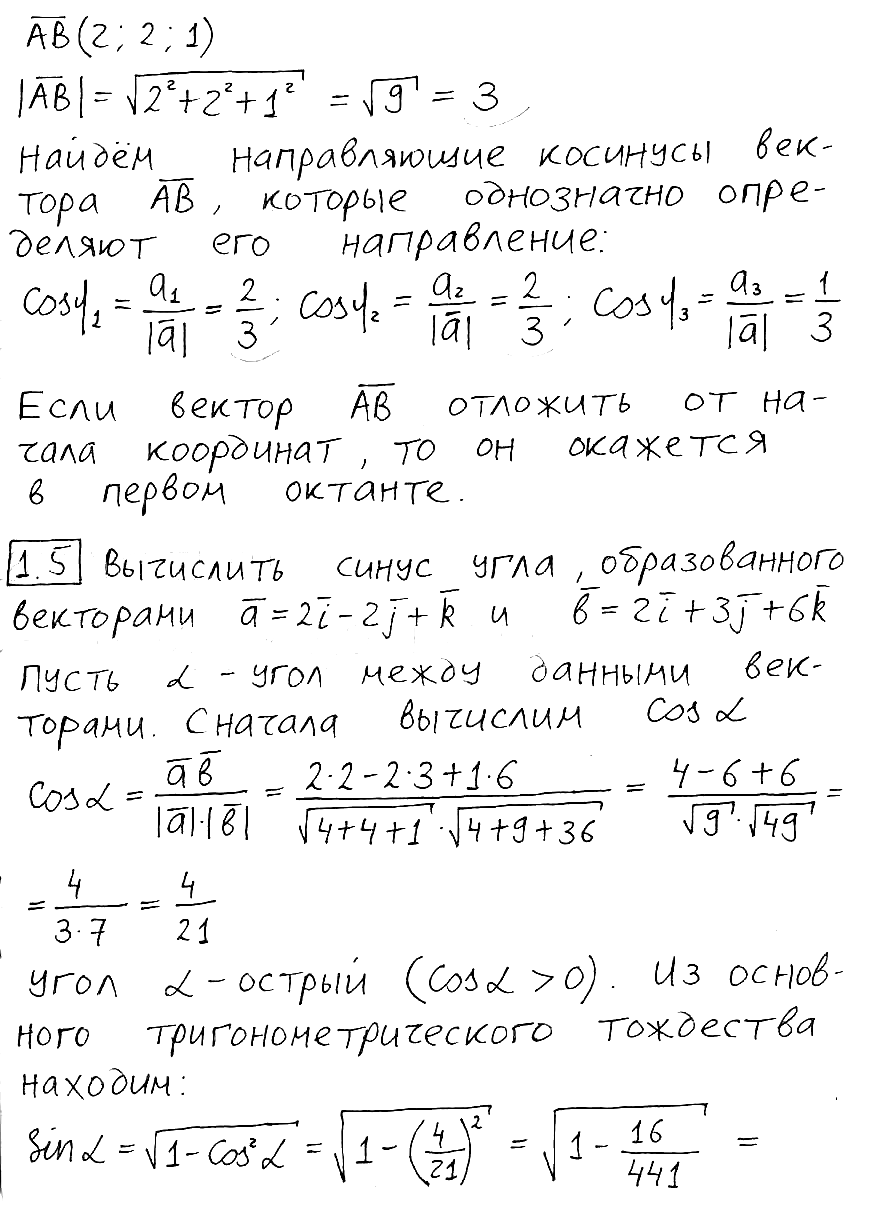 A̅B̅ (2; 2; 1)
|A̅B̅| = √(2² + 2² + 1²) = √9 = 3
Найдём направляющие косинусы век-
тора A̅B̅, которые однозначно опре-
деляют его направление:
Cos φ₁ = a₁/|a̅| = 2/3; Cos φ₂ = a₂/|a̅| = 2/3; Cos φ₃ = a₃/|a̅| = 1/3
Если вектор A̅B̅ отложить от на-
чала координат, то он окажется
в первом октанте.
1.5 Вычислить синус угла, образованного
векторами a̅ = 2i̅ - 2j̅ + k̅ и в̅ = 2i̅ + 3j̅ + 6k̅
Пусть α - угол между данными век-
торами. Сначала вычислим Cos α
Cos α = a̅ в̅/(|a̅|·|в̅|) = (2·2 - 2·3 + 1·6)/(√(4+4+1) · √(4+9+36)) = (4 - 6 + 6)/(√9 · √49) =
= 4/(3·7) = 4/21
Угол α - острый (Cos α > 0). Из основ-
ного тригонометрического тождества
находим:
Sin α = √(1 - Cos² α) = √(1 - (4/21)²) = √(1 - 16/441) =